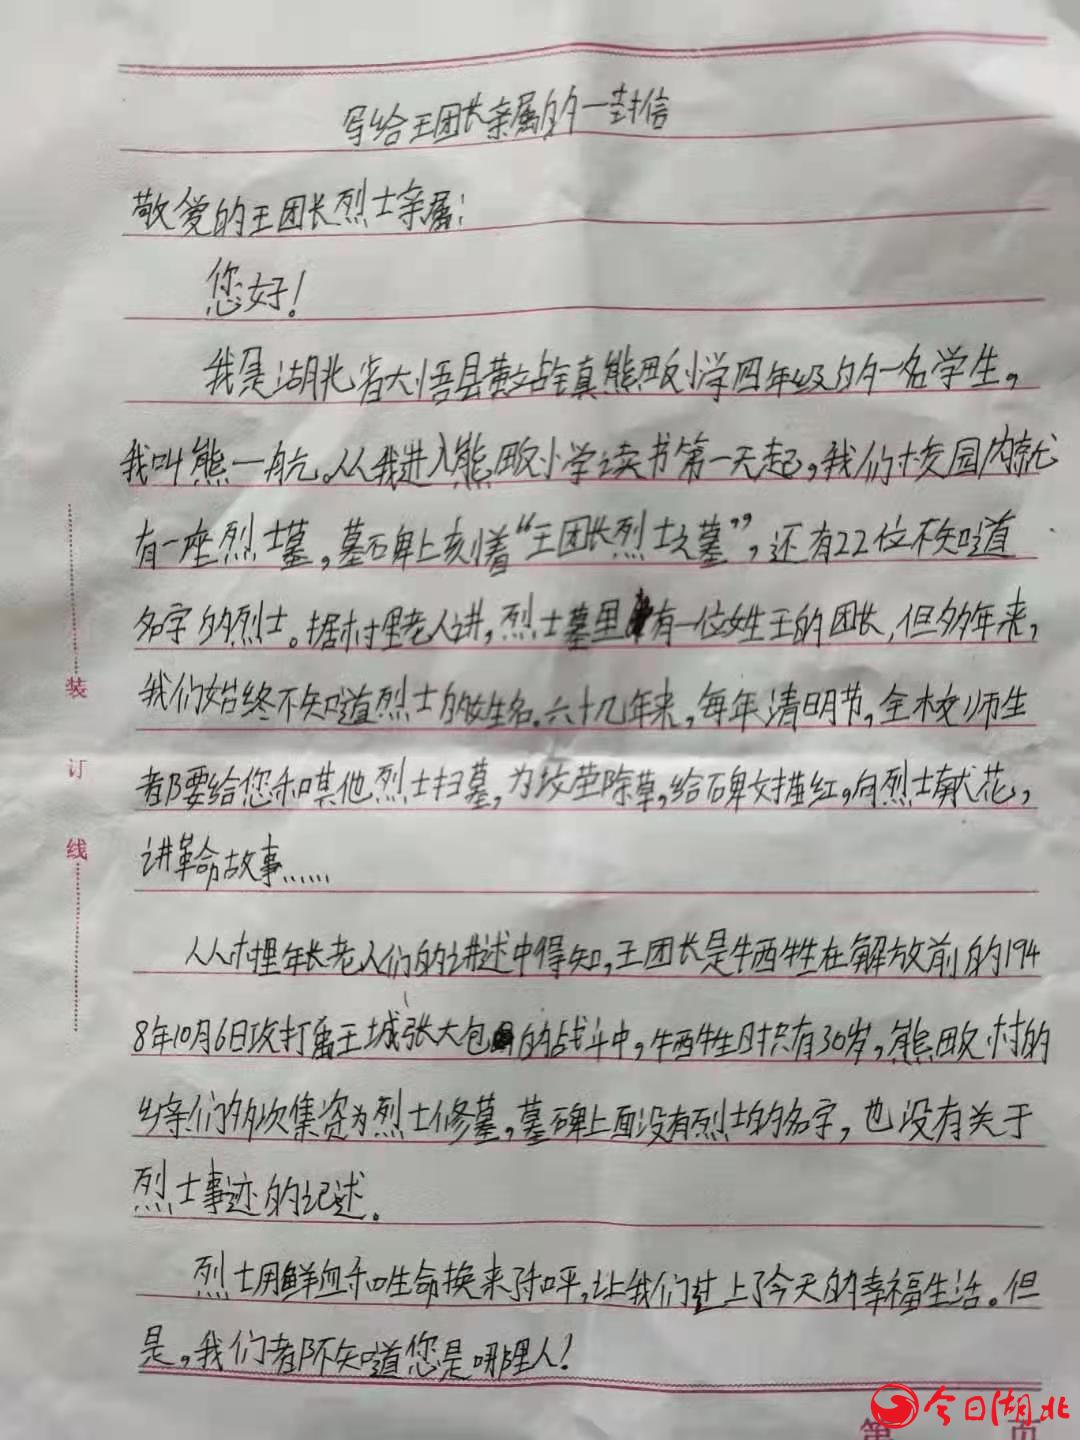 写给王团长亲属的一封信
敬爱的王团长烈士亲属:
您好!
我是湖北省大悟县黄站镇熊畈小学四年级的一名学生,
我叫熊一航。从我进入熊畈小学读书第一天起,我们校园内就
有一座烈士墓,墓石碑上刻着“王团长烈士之墓”,还有22位不知道
名字的烈士。据村里老人讲,烈士墓里有一位姓王的团长,但多年来,
我们始终不知道烈士的姓名。六十几年来,每年清明节,全校师生
都要给您和其他烈士扫墓,为坟茔除草,给碑文描红,向烈士献花,
讲革命故事……
从村里年长老人们的讲述中得知,王团长是牺牲在解放前的194
8年10月6日攻打禹王城张大包的战斗中,牺牲时只有30岁,熊畈村的
乡亲们多次集资为烈士修墓,墓碑上面没有烈士的名字,也没有关于
烈士事迹的记述。
烈士用鲜血和生命换来了和平,让我们过上了今天的幸福生活。但
是,我们都不知道您是哪里人!
装
订
线
第 页
今日湖北